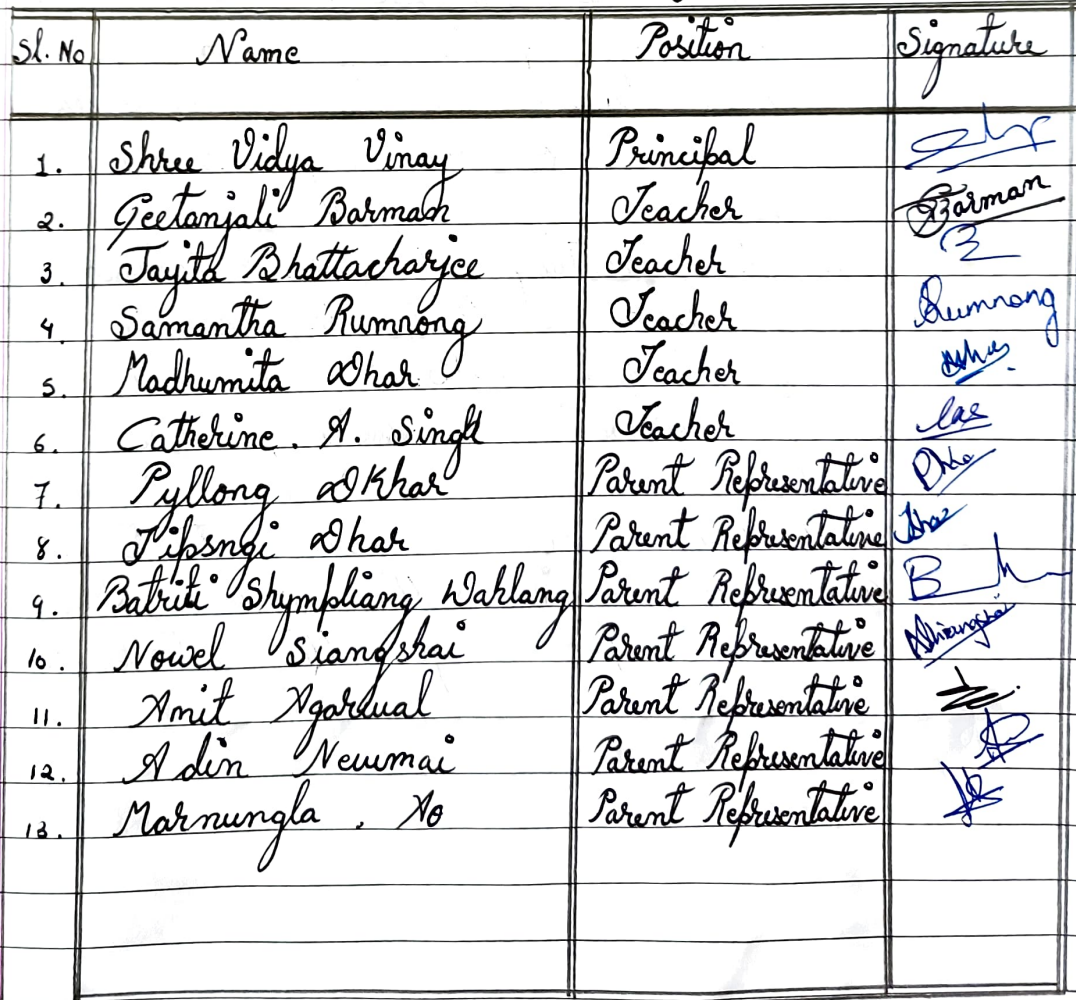 Sl. No Name Position Signature
1. Shree Vidya Vinay Principal
2. Geetanjali Barman Teacher Barman
3. Jayita Bhattacharjee Teacher
4 Samantha Rumnong Teacher Rumnong
5. Madhumita Dhar Teacher
6. Catherine. A. Singh Teacher
7. Pyllong Dkhar Parent Representative
8. Tipsngi Dhar Parent Representative
9. Batriti Shympliang Wahlang Parent Representative
10. Nowel Siangshai Parent Representative
11. Amit Agarwal Parent Representative
12. Adin Newmai Parent Representative
13. Marnungla. Ao Parent Representative